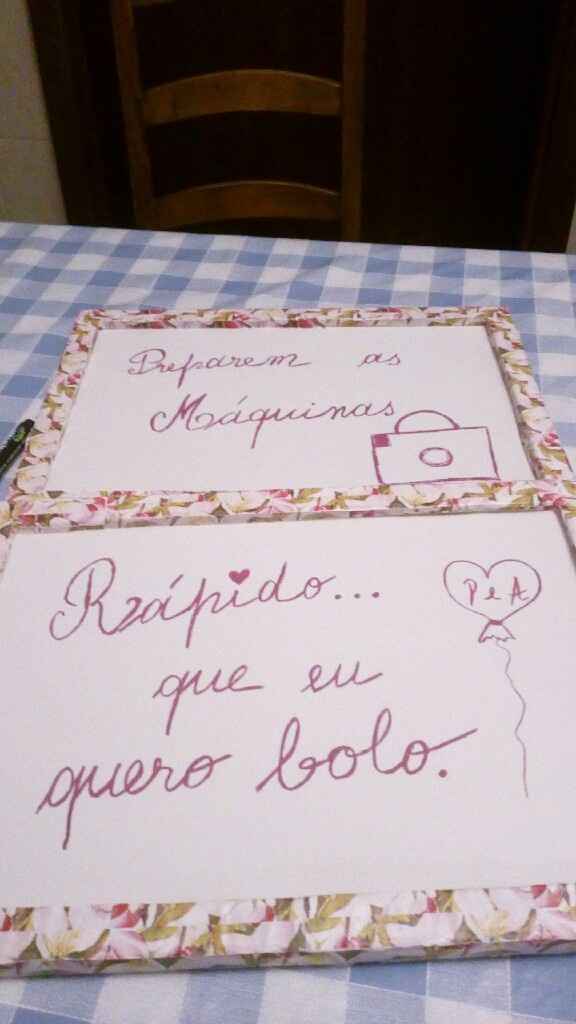 Preparem as
Máquinas
Rápido...
que eu
quero bolo.
P e A